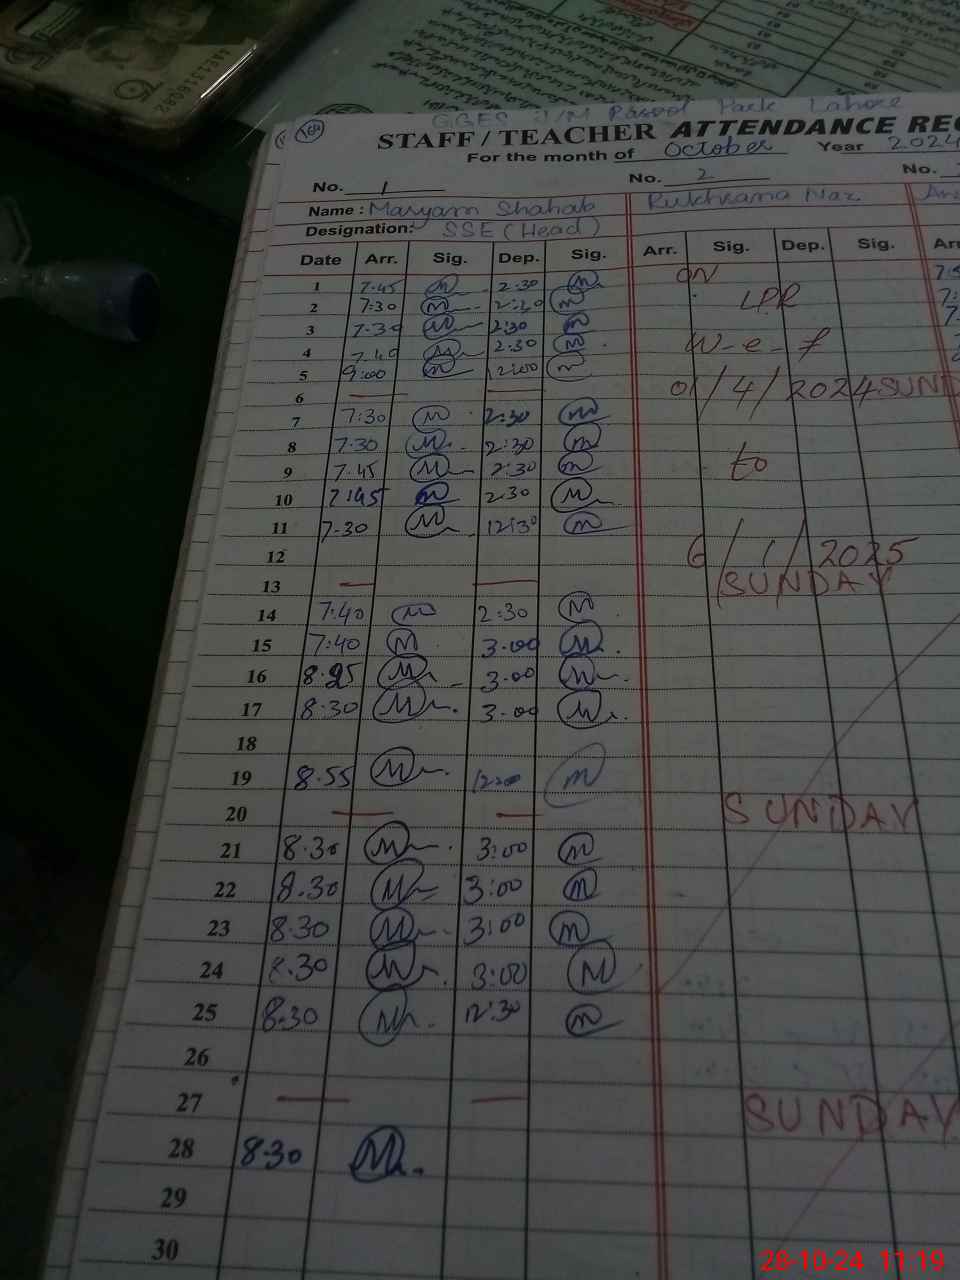 AA8E3160682
G.G.E.S J/M Rasool Park Lahore
168
STAFF/TEACHER ATTENDANCE REC
For the month of October Year 2024
No. 1 No. 2 No.
Name: Maryam Shahab Rukhsana Naz
Designation: SSE (Head)
Date Arr. Sig. Dep. Sig. Arr. Sig. Dep. Sig. Arr
1 7.45 M 2.30 M ON
2 7:30 M 2:30 M LPR
3 7.30 M 2:30 M
4 7.40 M 2.30 M w-e-f
5 9:00 M 12:00 M 01/4/2024 SUND
6 — —
7 7:30 M 2:30 M
8 7.30 M 2:30 M
9 7.45 M 2:30 M to
10 7:45 M 2.30 M
11 7-30 M 12:30 M
12 6/1/2025
13 — — SUNDAY
14 7:40 M 2:30 M
15 7:40 M 3.00 M
16 8.25 M 3.00 M
17 8.30 M 3.00 M
18
19 8.55 M 12:00 M
20 — — SUNDAY
21 8.30 M 3:00 M
22 8.30 M 3:00 M
23 8.30 M 3:00 M
24 8.30 M 3:00 M
25 8.30 M 12:30 M
26
27 — — SUNDAY
28 8.30 M
29
30
28-10-24 11:19